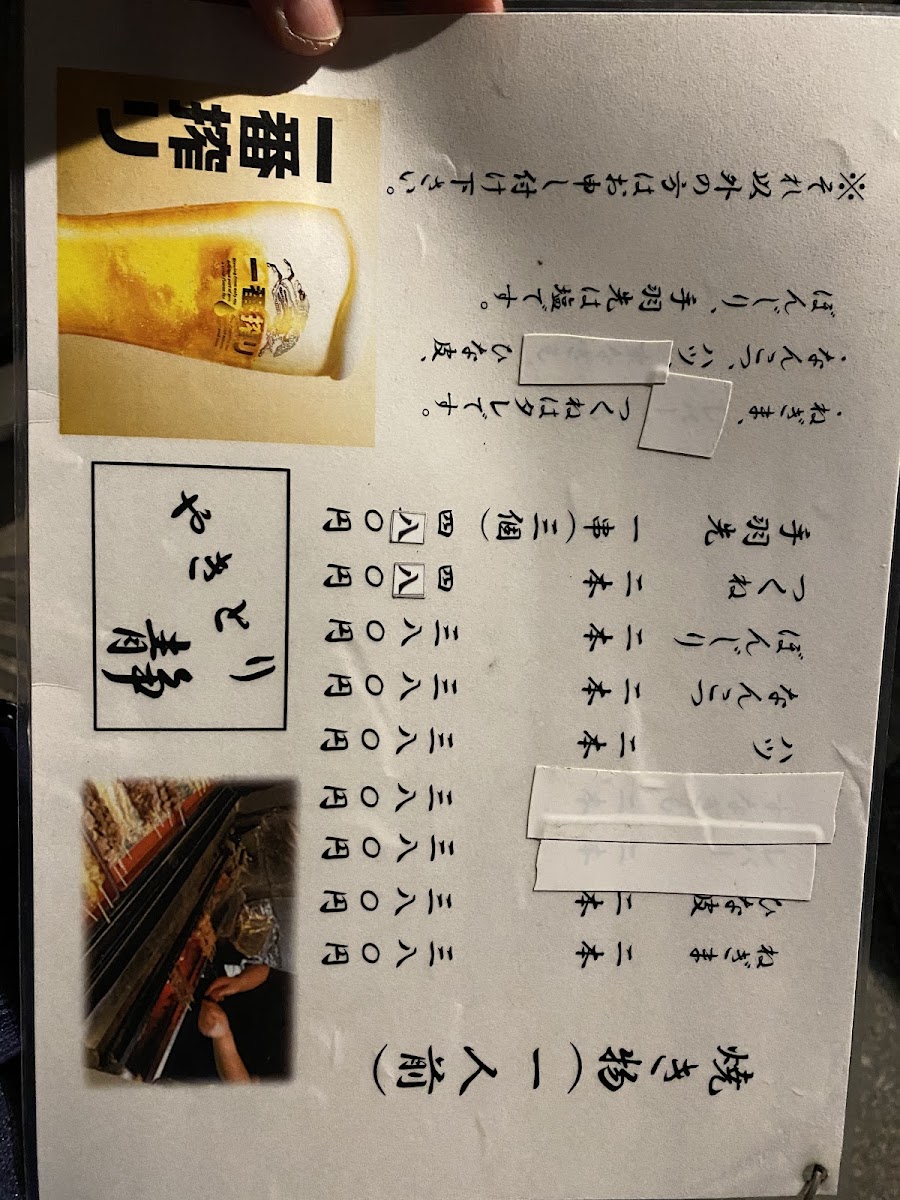 焼き物(一人前)
ねぎま 二本 三八〇円
ひな皮 二本 三八〇円
三八〇円
三八〇円
ハツ 二本 三八〇円
なんこつ 二本 三八〇円
ぼんじり 二本 三八〇円
つくね 二本 四八〇円
手羽先 一串(三個) 四八〇円
・ねぎま、つくねはタレです。
・なんこつ、ハツ、ひな皮、
ぼんじり、手羽先は塩です。
※それ以外の方はお申し付け下さい。
やきとり
静
一番
搾り
一番搾り